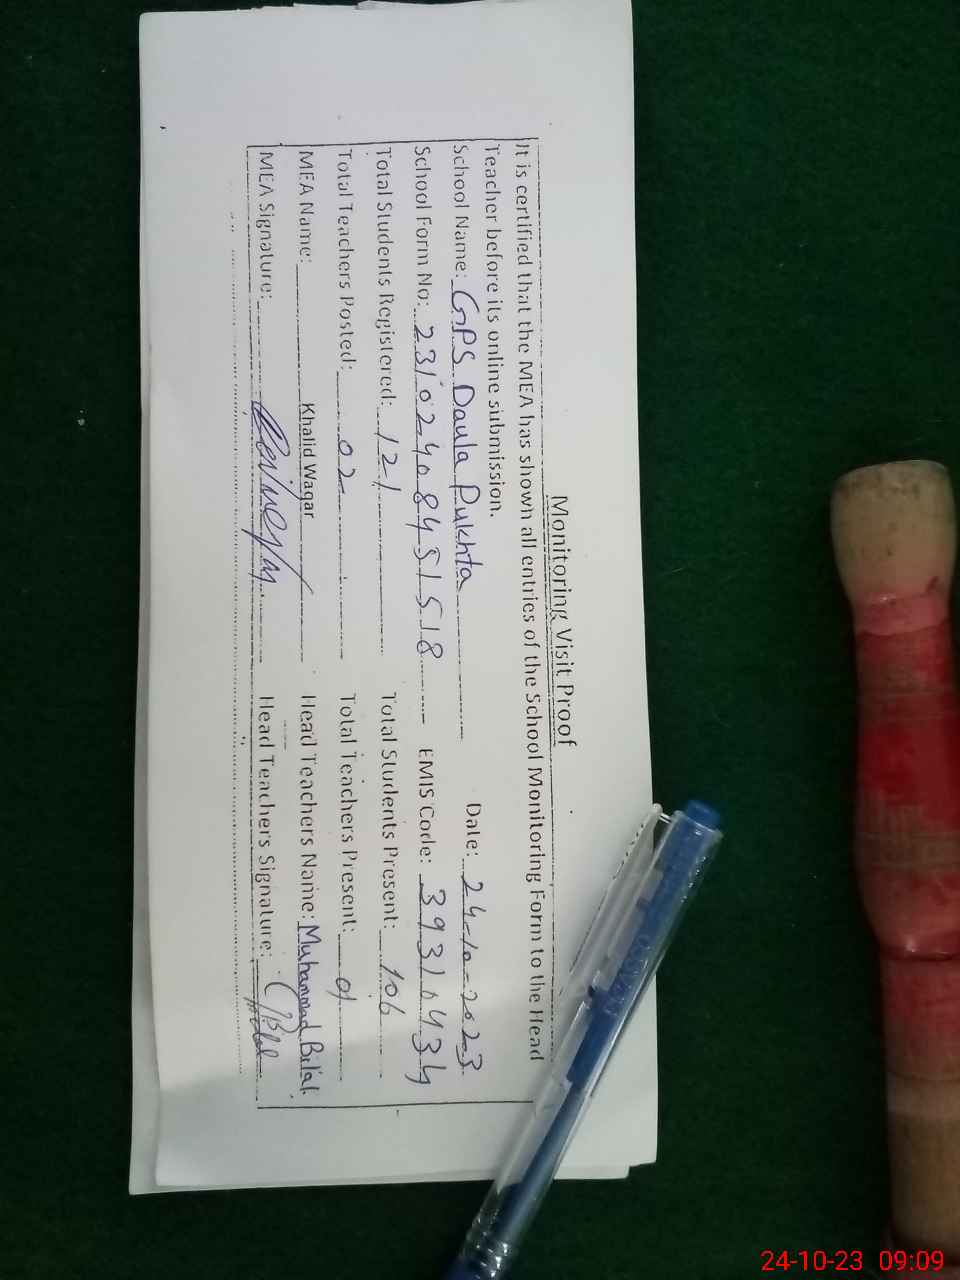 Monitoring Visit Proof
It is certified that the MEA has shown all entries of the School Monitoring Form to the Head
Teacher before its online submission.
School Name: GPS Daula Pukhta Date: 24-10-2023
School Form No: 23102408451518 EMIS Code: 39310434
Total Students Registered: 121 Total Students Present: 106
Total Teachers Posted: 02 Total Teachers Present:
MEA Name: Khalid Waqar Head Teachers Name: Muhammad Bilal
MEA Signature: Head Teachers Signature: Bilal
24-10-23 09:09